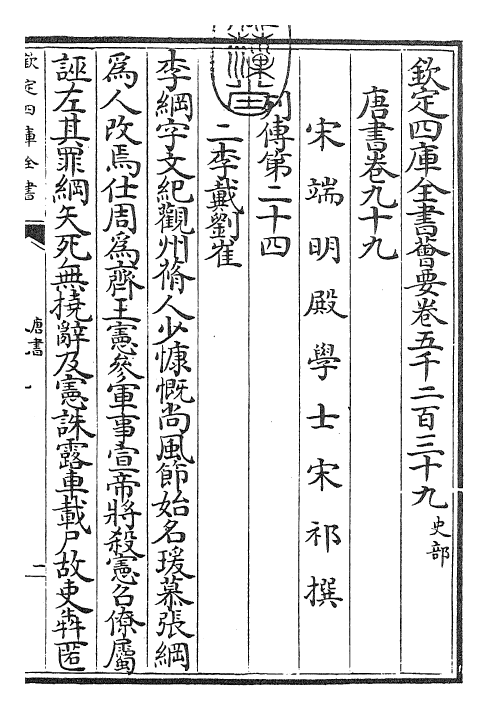 欽定四庫全書薈要卷五千二百三十九史部
唐書卷九十九
宋端明殿學士宋祁撰
列傳第二十四
二李戴劉崔
李綱字文紀觀州蓨人少慷慨尚風節始名瑗慕張綱
為人改焉仕周為齊王憲參軍事宣帝將殺憲召僚屬
誣左其罪綱矢死無撓辭及憲誅露車載尸故吏犇匿
欽定四庫全書
唐書
二